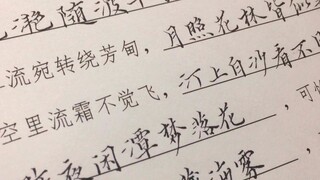 滟随波千
流宛转绕芳甸，月照花林皆似
空里流霜不觉飞，汀上白沙看不
昨夜闲潭梦落花，可
海雾，